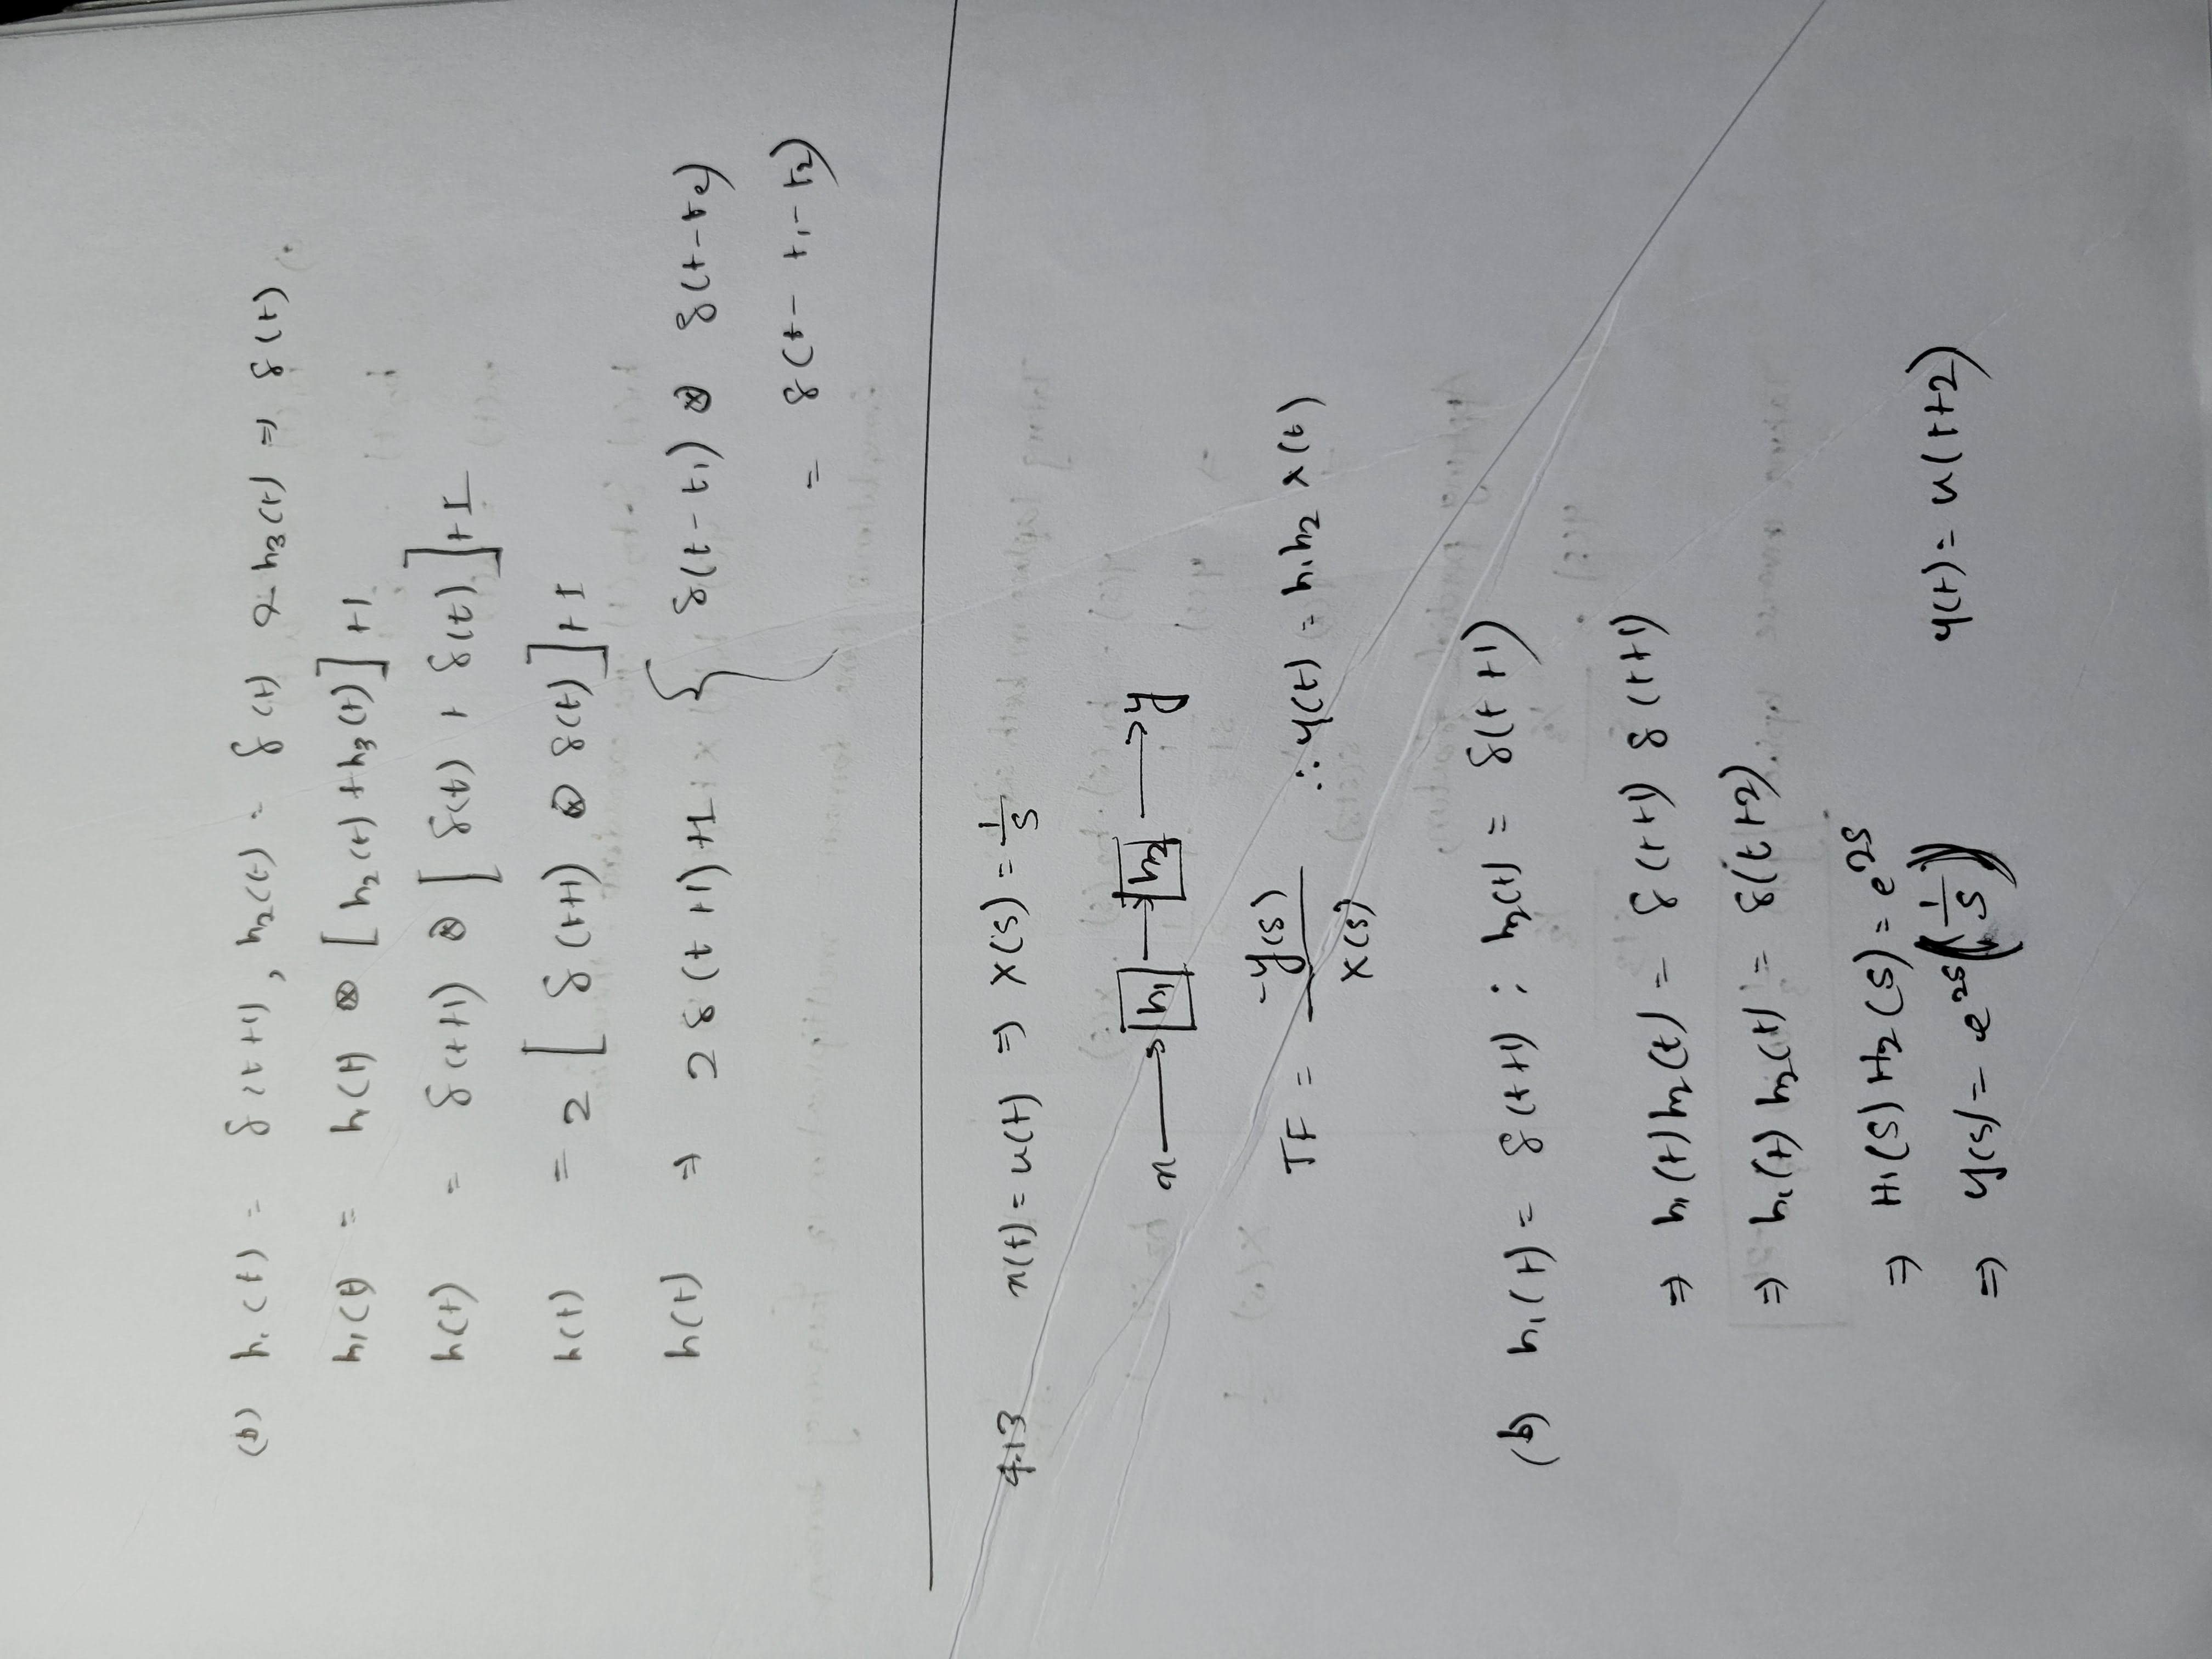 (b) h₁(t) = δ(t+1), h₂(t) = δ(t) & h₃(t) ⇒ δ(t).
h₁(t) = h(t) ⊗ [h₂(t) + h₃(t)] +1
h(t) = δ(t+1) ⊗ [δ(t) + δ(t)] +1
h(t) = 2 [δ(t+1) ⊗ δ(t)] +1
h(t) ⇒ 2δ(t+1)+1 { δ(t-t₁) ⊗ δ(t-t₂)
= δ(t-t₁-t₂)
4.13 x(t) = u(t) ⇒ X(s) = 1/s
x → h₁ → h₂ → y
TF = -y(s)/X(s) ∴ y(t) = h₁h₂ x(t)
(b) h₁(t) = δ(t+1) ; h₂(t) = δ(t+1)
⇒ h₁(t) h₂(t) = δ(t+1) δ(t+1)
⇒ h₁(t) h₂(t) = δ(t+2)
⇒ H₁(S) H₂(S) = e^2S
⇒ y(s) = e^2s (1/s) y(t) = u(t+2)